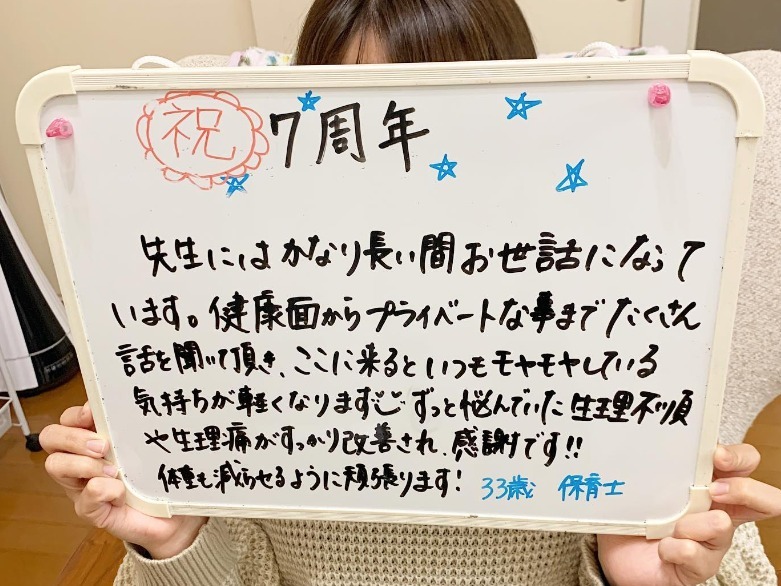 祝 7周年
先生にはかなり長い間お世話になって
います。健康面からプライベートな事までたくさん
話を聞いて頂き、ここに来るといつもモヤモヤしている
気持ちが軽くなります ずっと悩んでいた生理不順
や生理痛がすっかり改善され、感謝です!!
体重も減らせるように頑張ります! 33歳 保育士